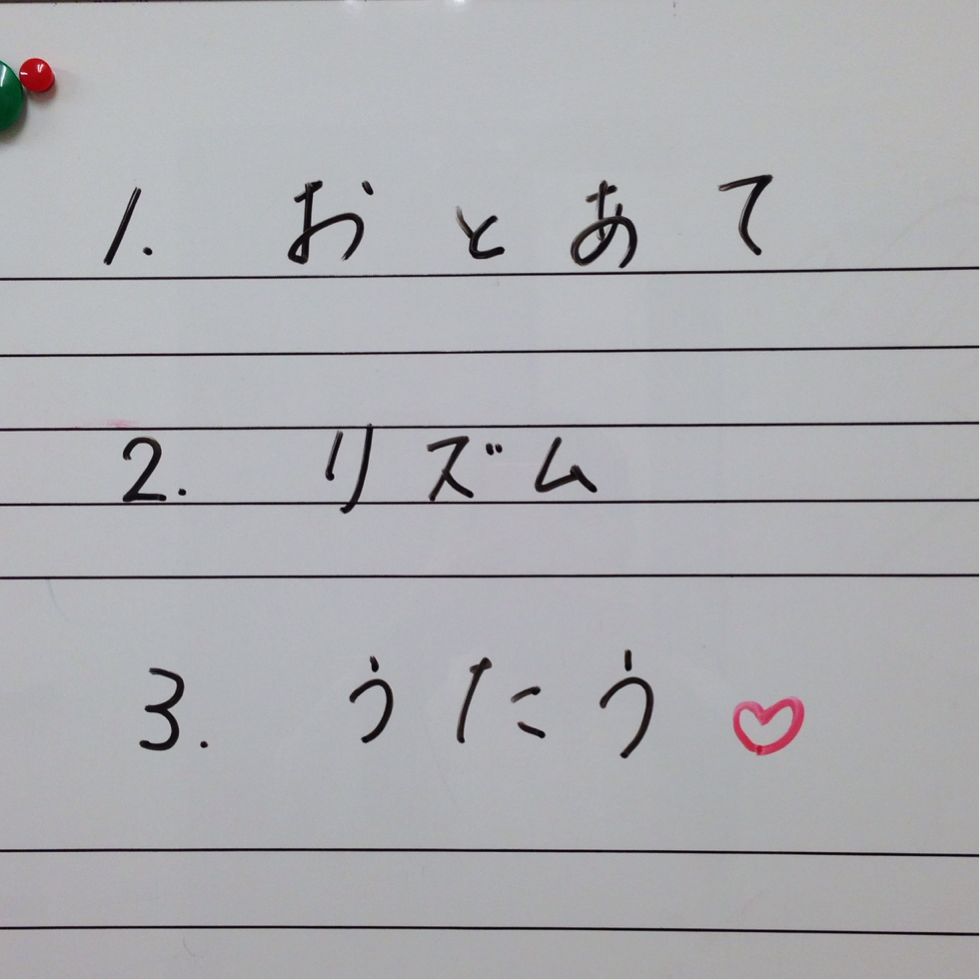 1. おとあて
2. リズム
3. うたう♡